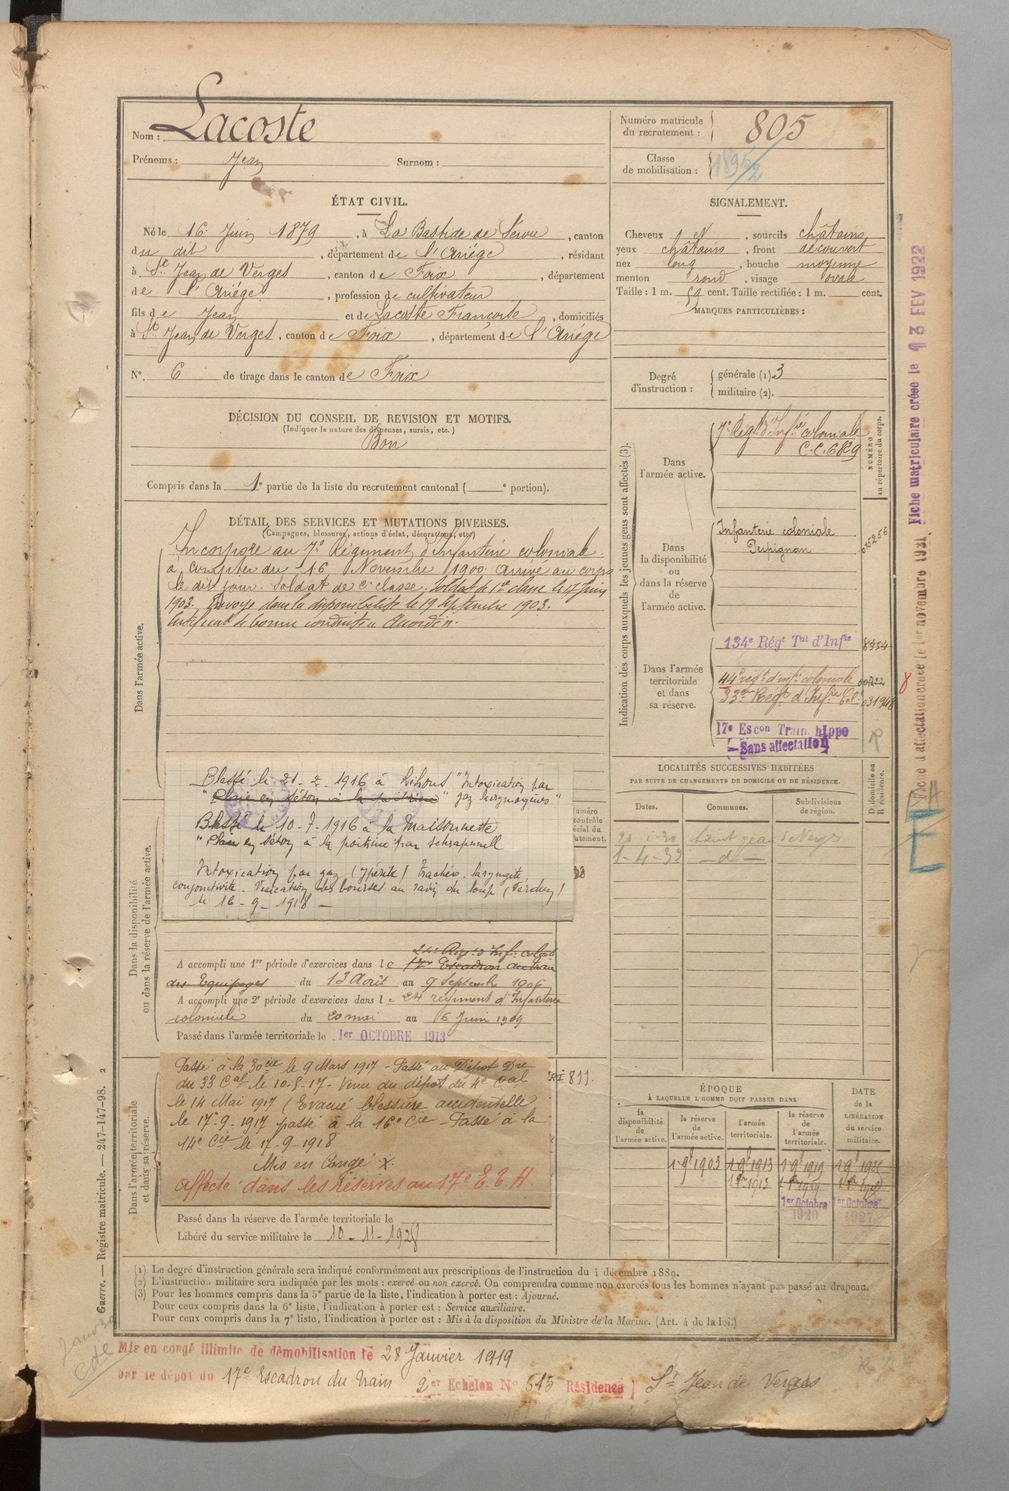 Nom : Lacoste
Prénoms : Jean Surnom :
Numéro matricule du recrutement : 805
Classe de mobilisation :
ÉTAT CIVIL.
Né le 16 Juin 1879, à La Bastide de Sérou, canton
du dit, département de l'Ariège, résidant
à St Jean de Verges, canton de Foix, département
de l'Ariège, profession de cultivateur
fils de Jean et de Lacoste Françoise, domiciliés
à St Jean de Verges, canton de Foix, département de l'Ariége
N° 6 de tirage dans le canton de Foix
SIGNALEMENT.
Cheveux, sourcils châtains
yeux châtains, front découvert
nez long, bouche moyenne
menton rond, visage ovale
Taille : 1 m. 59 cent. Taille rectifiée : 1 m. cent.
MARQUES PARTICULIÈRES :
Degré d'instruction : générale (1). 3
militaire (2).
DÉCISION DU CONSEIL DE REVISION ET MOTIFS.
(Indiquer la nature des dispenses, sursis, etc.)
Bon
Compris dans la 1e partie de la liste du recrutement cantonal ( e portion).
DÉTAIL DES SERVICES ET MUTATIONS DIVERSES.
(Campagnes, blessures, actions d'éclat, décorations, etc.)
Dans l'armée active.
Incorporé au 7e Régiment d'infanterie coloniale
à compter du 16 Novembre 1900 arrivé au corps
le dit jour. Soldat de 2e classe, soldat de 1re classe le 14 juin
1903. Envoyé dans la disponibilité le 19 Septembre 1903.
Certificat de bonne conduite accordé.
Indication des corps auxquels les jeunes gens sont affectés (3).
NUMÉRO au répertoire du corps.
Dans l'armée active.
7e Régt d'Infie coloniale
C.C. 6829
Dans la disponibilité ou dans la réserve de l'armée active.
Infanterie coloniale
Perpignan
Dans l'armée territoriale et dans sa réserve.
134e Régt Tal d'Infie
44e régt d'inf. coloniale
33e Régt d'Infie Col.
17e Escon Train hippo
Sans affectation
R
Fiche matriculaire créée le 13 FEV 1922
Fiche d'affectation créée le 1er novembre 1921
8
Dans la disponibilité ou dans la réserve de l'armée active.
Blessé le 21-2-1916 à Lihons "Intoxication par
"Plaie en séton à la poitrine" gaz lacrymogènes"
Blessé le 10-7-1916 à la Maisonnette
"Plaie en séton à la poitrine par schrapnell
Intoxication par gaz (ypérite) Trachéo-laryngite,
conjonctivite. Vésication des bourses au ravin du loup (Verdun)
le 16-9-1918 —
A accompli une 1re période d'exercices dans le
17e Escadron du train
des Equipages du 13 Août au 9 Septembre 1906
A accompli une 2e période d'exercices dans le 24 régiment d'Infanterie
coloniale du 20 mai au 6 Juin 1909
Passé dans l'armée territoriale le 1er OCTOBRE 1913
Dans l'armée territoriale et dans sa réserve.
Passé à la 30 cie le 9 Mars 1917 - Passé au Dépôt
du 33 Cal le 10-5-17 - Venu du dépôt du 4e Cal
le 14 Mai 1917 (Evacué blessure accidentelle
le 17-9-1917 passé à la 16e Cie - Passé à la
14e Cie le 17-9-1918
Mis en Congé
Affecté dans les réserves au 17e E.T.H.
811
Passé dans la réserve de l'armée territoriale le
Libéré du service militaire le 10-11-1928
LOCALITÉS SUCCESSIVES HABITÉES
PAR SUITE DE CHANGEMENTS DE DOMICILE OU DE RÉSIDENCE.
Dates. Communes. Subdivisions de région. D domicile ou R résidence.
20-1-30 Saint Jean de Verges
1-4-32 —d—
ÉPOQUE
À LAQUELLE L'HOMME DOIT PASSER DANS
la disponibilité de l'armée active.
la réserve de l'armée active.
l'armée territoriale.
la réserve de l'armée territoriale.
DATE de la LIBÉRATION du service militaire.
1 9bre 1903 1 9bre 1913 1 9bre 1919
1er Octobre 1920 1er Octobre 1927
(1) Le degré d'instruction générale sera indiqué conformément aux prescriptions de l'instruction du 4 décembre 1889.
(2) L'instruction militaire sera indiquée par les mots : exercé ou non exercé. On comprendra comme non exercés tous les hommes n'ayant pas passé au drapeau.
(3) Pour les hommes compris dans la 5e partie de la liste, l'indication à porter est : Ajourné.
Pour ceux compris dans la 6e liste, l'indication à porter est : Service auxiliaire.
Pour ceux compris dans la 7e liste, l'indication à porter est : Mis à la disposition du Ministre de la Marine. (Art. 4 de la loi.)
Guerre. — Registre matricule. — 247-147-98. 2
Mis en congé illimité de démobilisation le 28 Janvier 1919
par le dépôt du 17e Escadron du Train 2er Echelon N° 613 Résidence St Jean de Verges